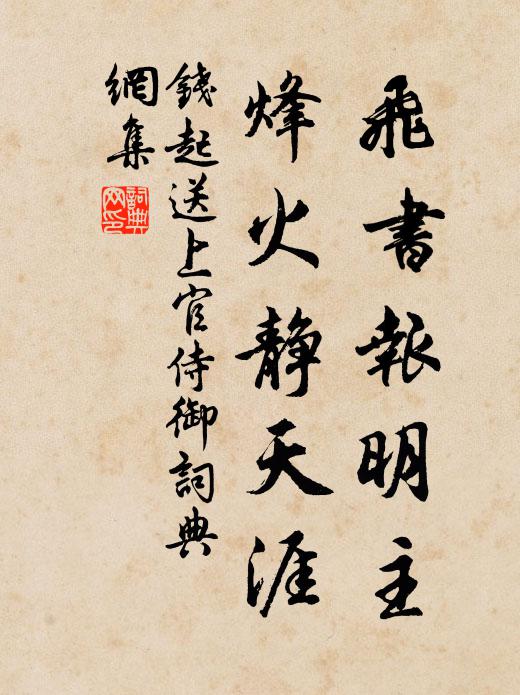 飛書報明主
烽火靜天涯
錢起送上官侍御詞典
網集
詞典
网印